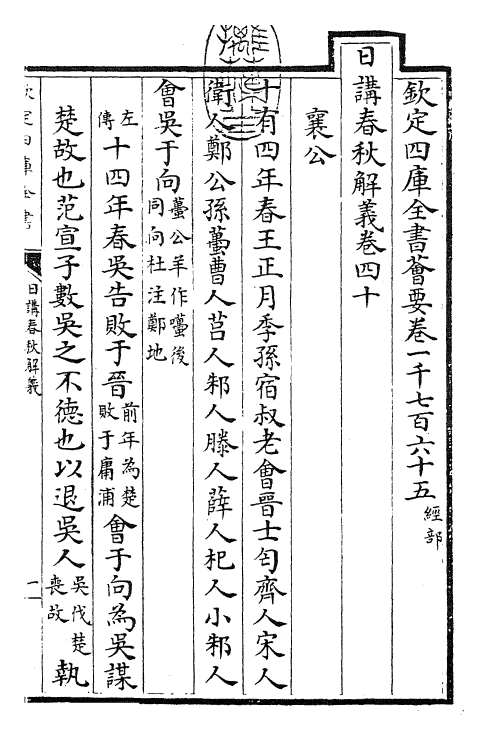 欽定四庫全書薈要卷一千七百六十五 經部
日講春秋解義卷四十
襄公
十有四年春王正月季孫宿叔老會晉士匄齊人宋人
衛人鄭公孫蠆曹人莒人邾人滕人薛人杞人小邾人
會吳于向 蠆公羊作囆後同向杜注鄭地
左傳 十四年春吳告敗于晉 前年為楚敗于庸浦 會于向為吳謀
楚故也范宣子數吳之不德也以退吳人 吳伐楚喪故 執
欽定四庫全書
日講春秋解義
一